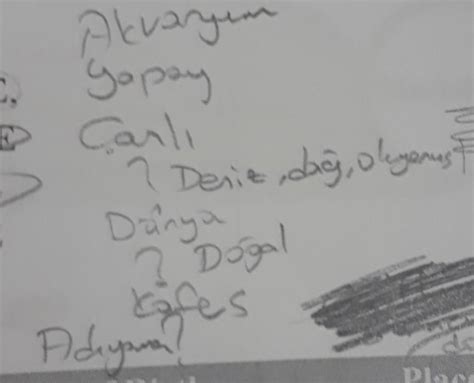 Akvaryum
Yapay
Canlı
? Deniz, dağ, okyanus
Dünya
? Doğal
Kafes
Adıyaman?
Plac